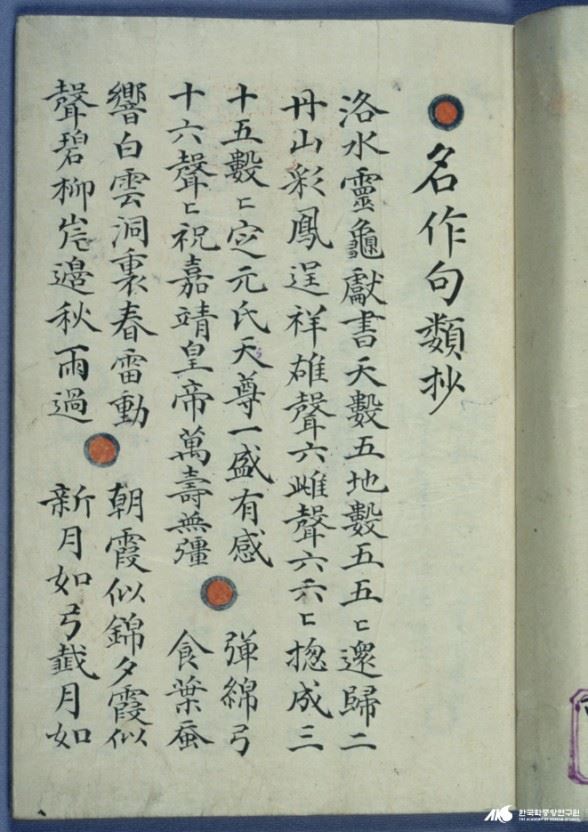 名作句類抄
洛水靈龜獻書天數五地數五五〻還歸二
丹山彩鳳逞祥雄聲六雌聲六六〻揔成三
十五數〻定元氏天尊一盛有感 彈綿弓
十六聲〻祝嘉靖皇帝萬壽無疆 食葉蚕
響白雲洞裏春雷動 朝霞似錦夕霞似
聲碧柳岸邊秋雨過 新月如弓月如
한국학중앙연구원
THE ACADEMY OF KOREAN STUDIES